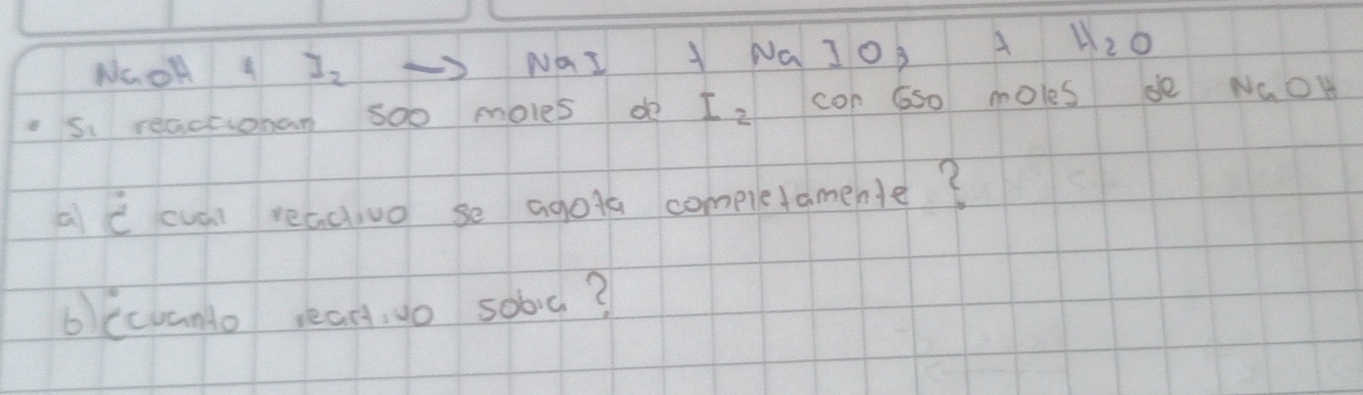 NaOH + I2 → NaI + NaIO3 + H2O
• Si reaccionan 500 moles de I2 con 650 moles de NaOH
a) ¿cual reactivo se agota completamente?
b) ¿cuanto reactivo sobra?